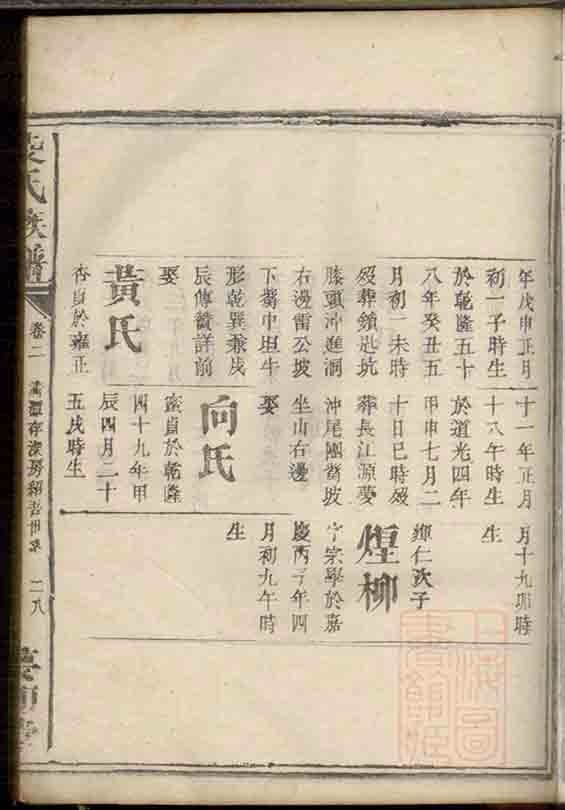 年戊申正月
初一子時生
於乾隆五十
八年癸丑五
月初一未時
歿葬鎖匙坑
膝頭沖進洞
右邊雷公坡
下蜀中坦牛
形乾巽兼戌
辰傳贊詳前
娶
黃氏
杏貞於雍正
十一年正月
十八午時生
於道光四年
甲申七月二
十日巳時歿
葬長江源夢
沖尾團蜀坡
坐山右邊
娶
向氏
蜜貞於乾隆
四十九年甲
辰四月二十
五戌時生
月十九卯時
生
輝仁次子
煌柳
字宗學於嘉
慶丙子年四
月初九午時
生
氏族譜
卷二
二八
上海圖
書館藏